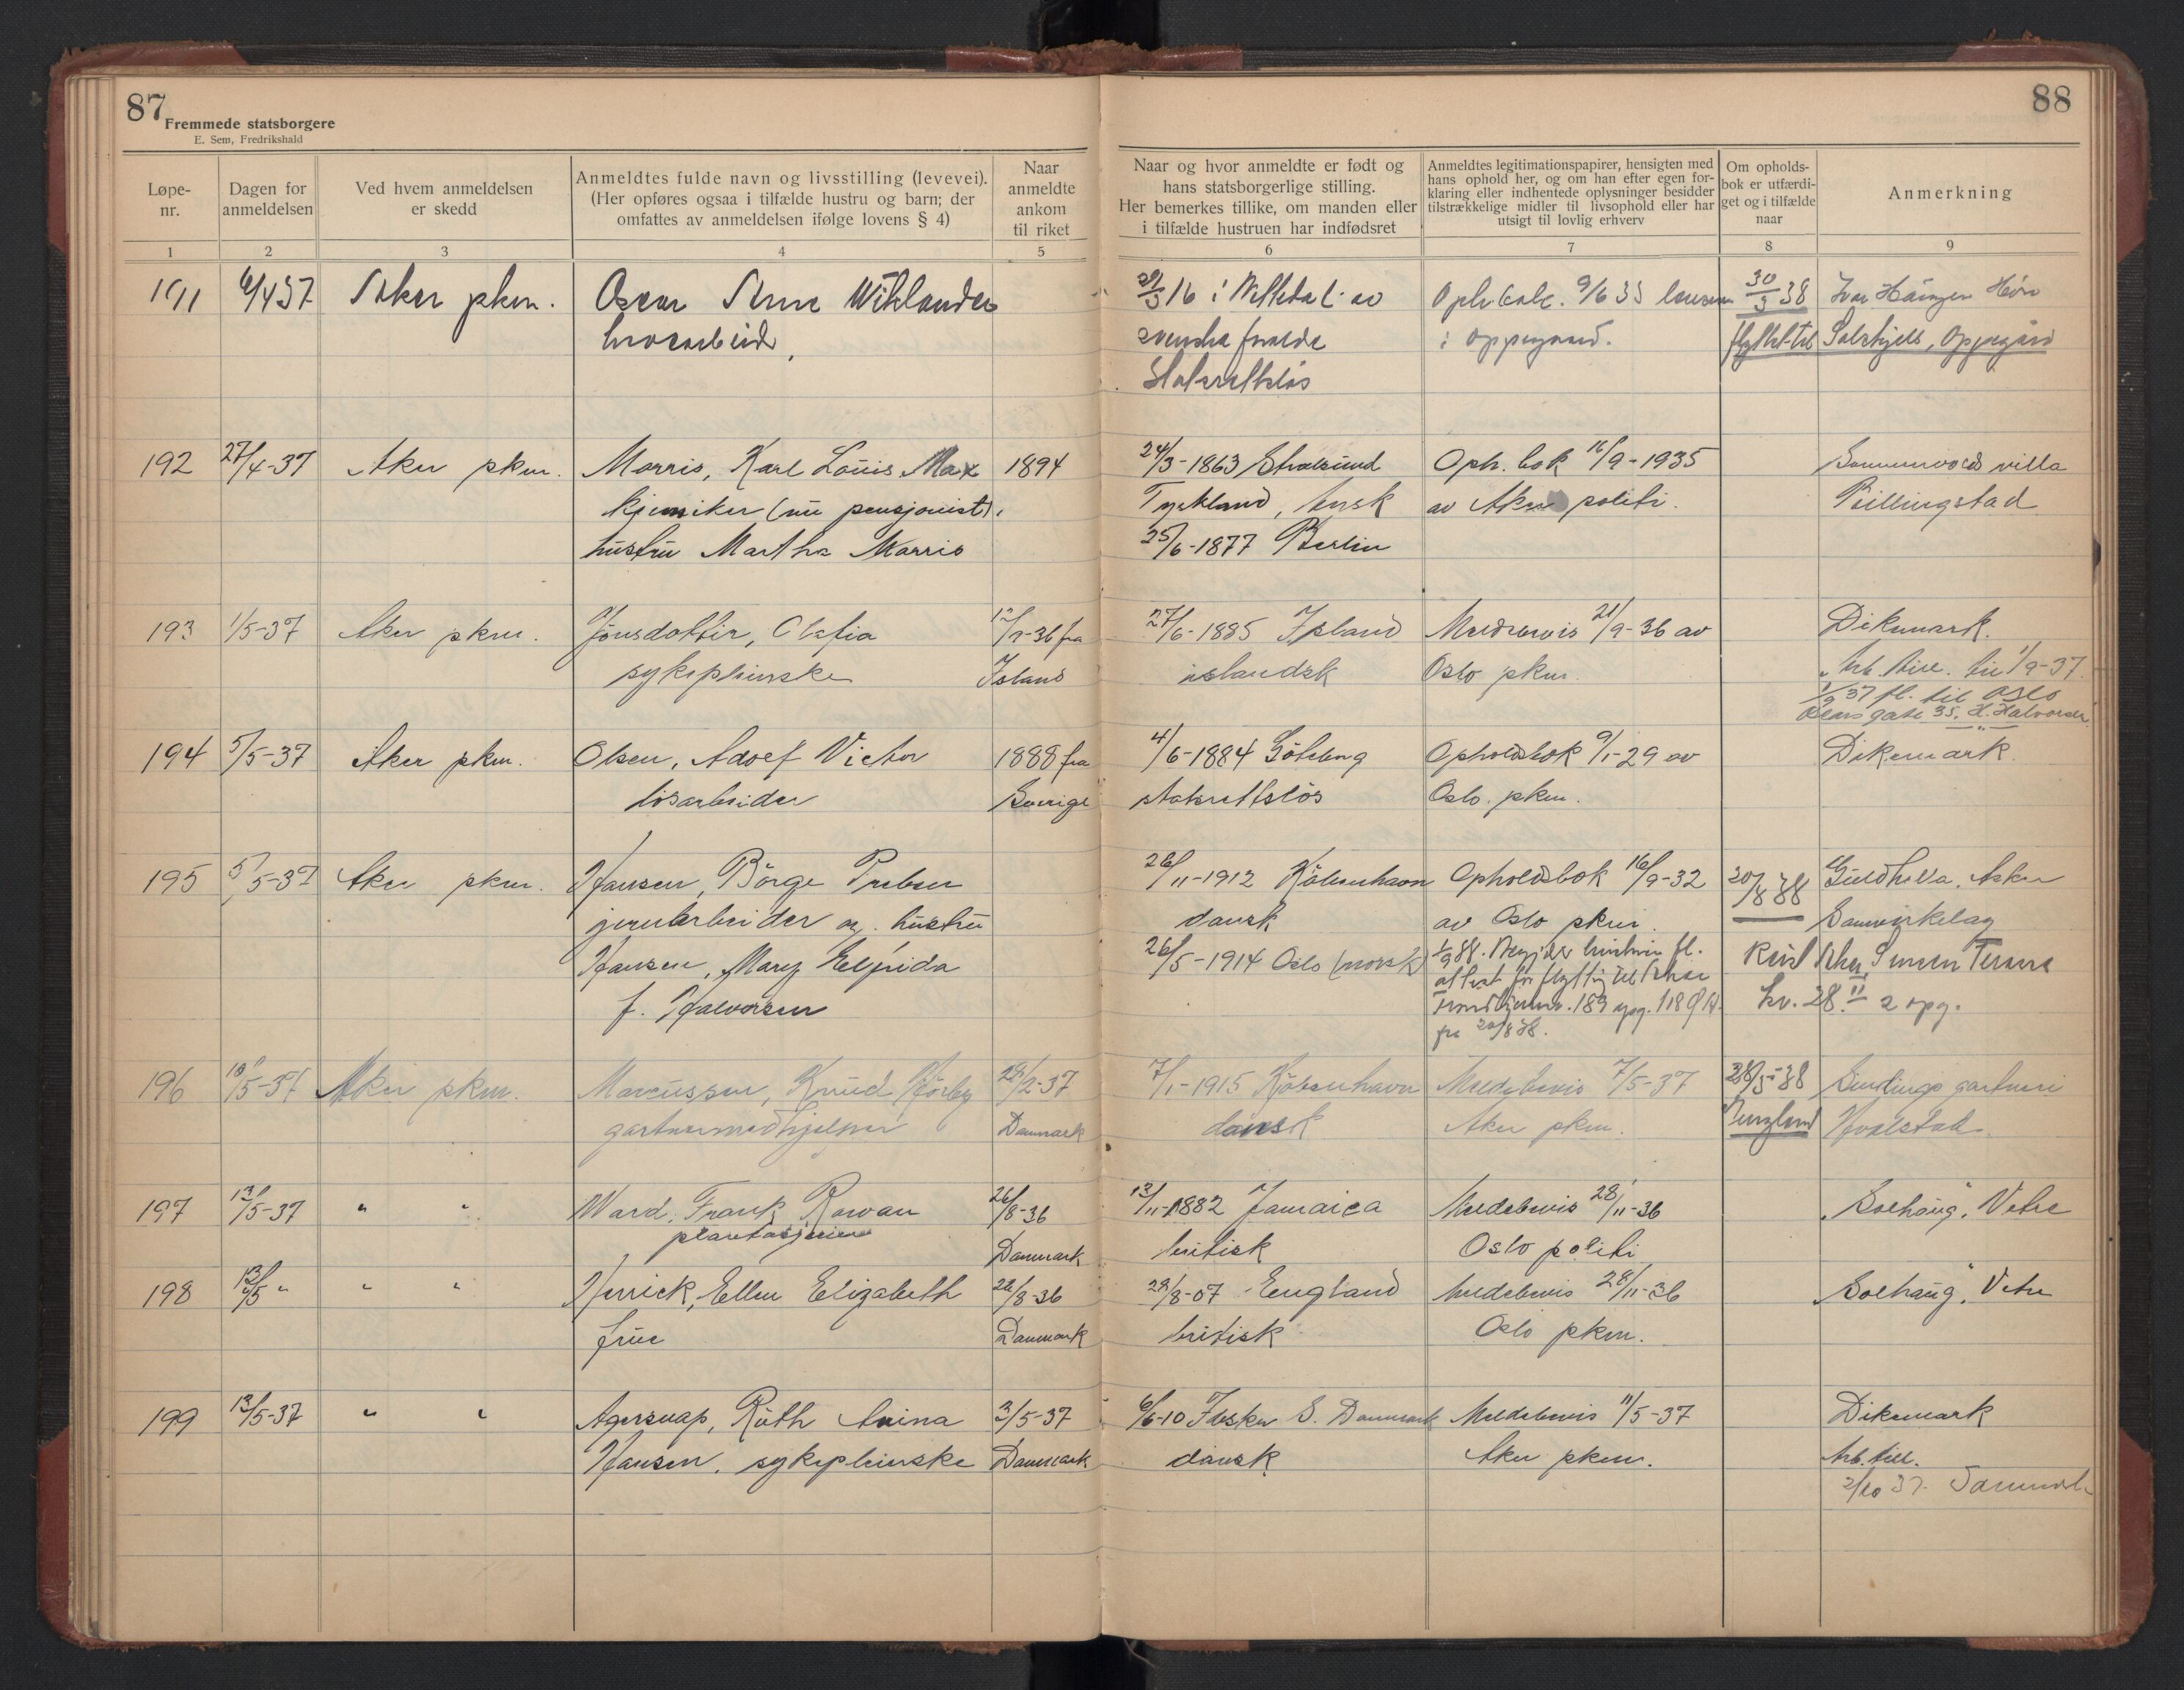 87
Fremmede statsborgere
E. Sem, Fredrikshald
88
Løpe-nr.
Dagen for anmeldelsen
Ved hvem anmeldelsen er skedd
Anmeldtes fulde navn og livsstilling (levevei). (Her opføres ogsaa i tilfælde hustru og barn; der omfattes av anmeldelsen ifølge lovens § 4)
Naar anmeldte ankom til riket
Naar og hvor anmeldte er født og hans statsborgerlige stilling. Her bemerkes tillike, om manden eller i tilfælde hustruen har indfødsret
Anmeldtes legitimationspapirer, hensigten med hans ophold her, og om han efter egen forklaring eller indhentede oplysninger besidder tilstrækkelige midler til livsophold eller har utsigt til lovlig erhverv
Om opholdsbok er utfærdiget og i tilfælde naar
Anmerkning
1 2 3 4 5 6 7 8 9
191 6/4 37 Aker pkm. Oscar Arne Wihlander 16 i av 9/6 35 30/3 38
svenske i Oppegaard. flyttet til Oppegård
Statsrettsløs
192 27/4-37 Aker pkm. Morris, Karl Louis Max 1894 24/3-1863 Stralsund Oph. bok 16/9-1935 villa
kjemiker (nu pensjonist). Tyskland, tysk av Aker politi. Billingstad
hustru Martha Morris 25/6-1877 Berlin
193 1/5-37 Aker pkm. Jónsdottir, Olafia 36 fra 27/6-1885 Island Meldebevis 21/9-36 av Dikemark.
sykepleierske Island islandsk Oslo pkm. Arb. till. til 1/9-37
1/9 37 fl. til Oslo
gate 35, H. Halvorsen
194 5/5-37 Aker pkm. Olsen, Adolf Victor 1888 fra 4/6-1884 Göteborg Opholdsbok 9/1-29 av Dikemark.
løsarbeider Sverige statsrettsløs Oslo pkm.
195 5/5-37 Aker pkm. Hansen, Børge Preben 26/11-1912 København Opholdsbok 16/9-32 20/8 38 Asker
jernarbeider og hustru dansk av Oslo pkm. Samvirkelag
Hansen, Mary Elfrida 26/5-1914 Oslo (norsk)
f. Halvorsen
196 10/5-37 Aker pkm. Marcussen, Knud 2-37 7/1-1915 København Meldebevis 7/5-37 38 gartneri
gartnermedhjelper Danmark dansk Aker pkm. Hvalstad
197 13/5-37 " " Ward, Frank Rowan 26/8-36 13/11-1882 Jamaica Meldebevis 28/11-36 "Solhaug", Vetre
Danmark britisk Oslo politi
198 13/5 " " " Herrick, Ellen Elizabeth 26/8-36 8-07 England Meldebevis 28/11-36 "Solhaug", Vetre
frue Danmark britisk Oslo pkm.
199 13/5-37 " " Agersnap, Ruth Anina 3/5-37 6/6-10 S. Danmark Meldebevis 11/5-37 Dikemark
Hansen, sykepleierske Danmark dansk Aker pkm. Arb. till.
2/10 37. Danmark